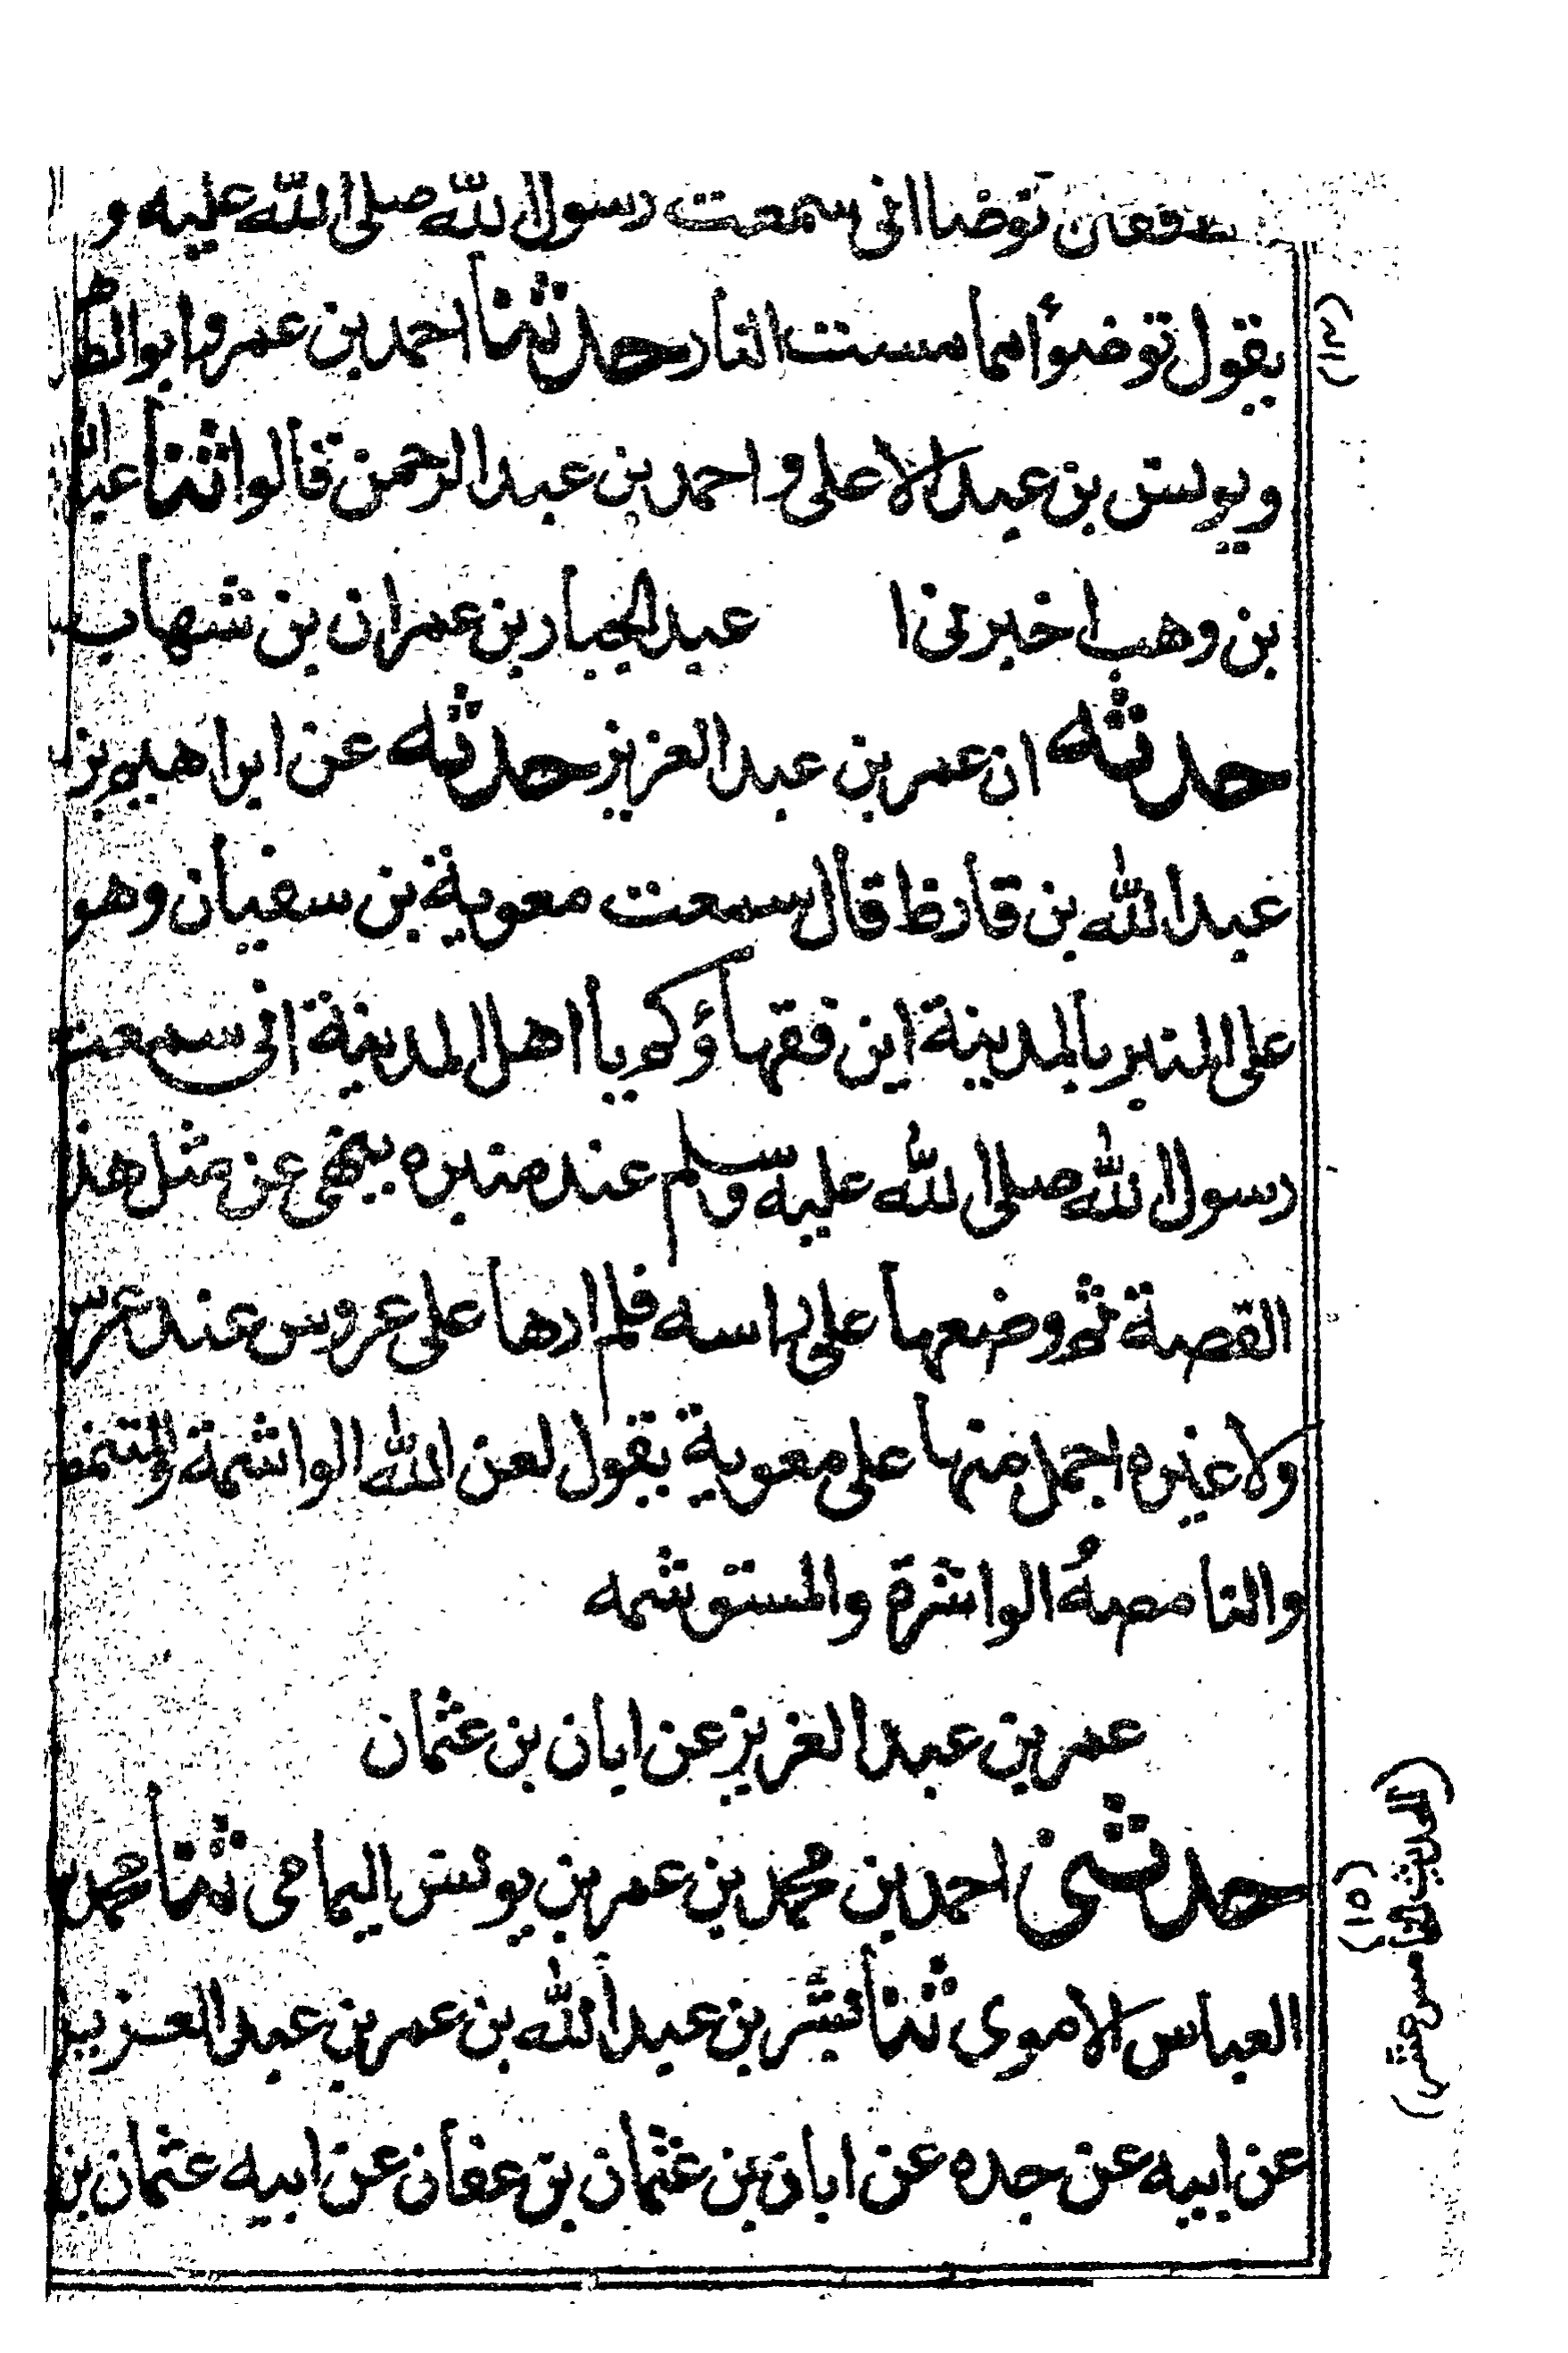 فقال توضا انى سمعت رسول الله صلى الله عليه و
يقول توضوأ مما مست النار حدثنا احمد بن عمرو ابو الطاهر
ويونس بن عبد الاعلى و احمد بن عبد الرحمن قالوا ثنا عبد الله
بن وهب اخبرنى ا عبد الجبار بن عمر ان بن شهاب
حدثه ان عمر بن عبد العزيز حدثه عن ابراهيم بن
عبد الله بن قارظ قال سمعت معوية بن سفيان وهو
على المنبر بالمدينة اين فقهاؤكم يا اهل المدينة انى سمعت
رسول الله صلى الله عليه وسلم عند منبره ينهى عن مثل هذ
القصة ثم وضعها على راسه فلم ارها على عروس عند عرس
ولا غيره اجمل منها على معوية يقول لعن الله الواشمة والمتنمصة
والنامصهُ الواشرة والمستوشمه
عمر بن عبد العزيز عن ابان بن عثمان
حدثنى احمد بن محمد بن عمر بن يونس اليمامى ثنا محمد
العباس الاموى ثنا بشر بن عبد الله بن عمر بن عبد العزيز
عن ابيه عن جده عن ابان بن عثمان بن عفان عن ابيه عثمان بن
(الحديث الخامس عشر)
(١٥)